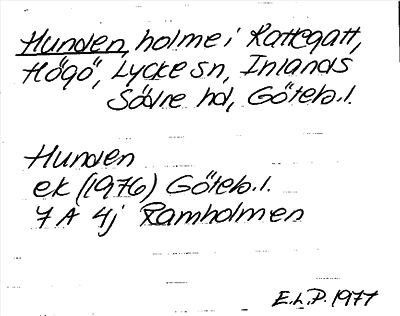 Hunden, holme i Kattegatt,
Högö, Lycke sn, Inlands
Södre hd, Göteb.l.
Hunden
ek (1976) Göteb.l.
7 A 4j Ramholmen
E.L.P. 1977